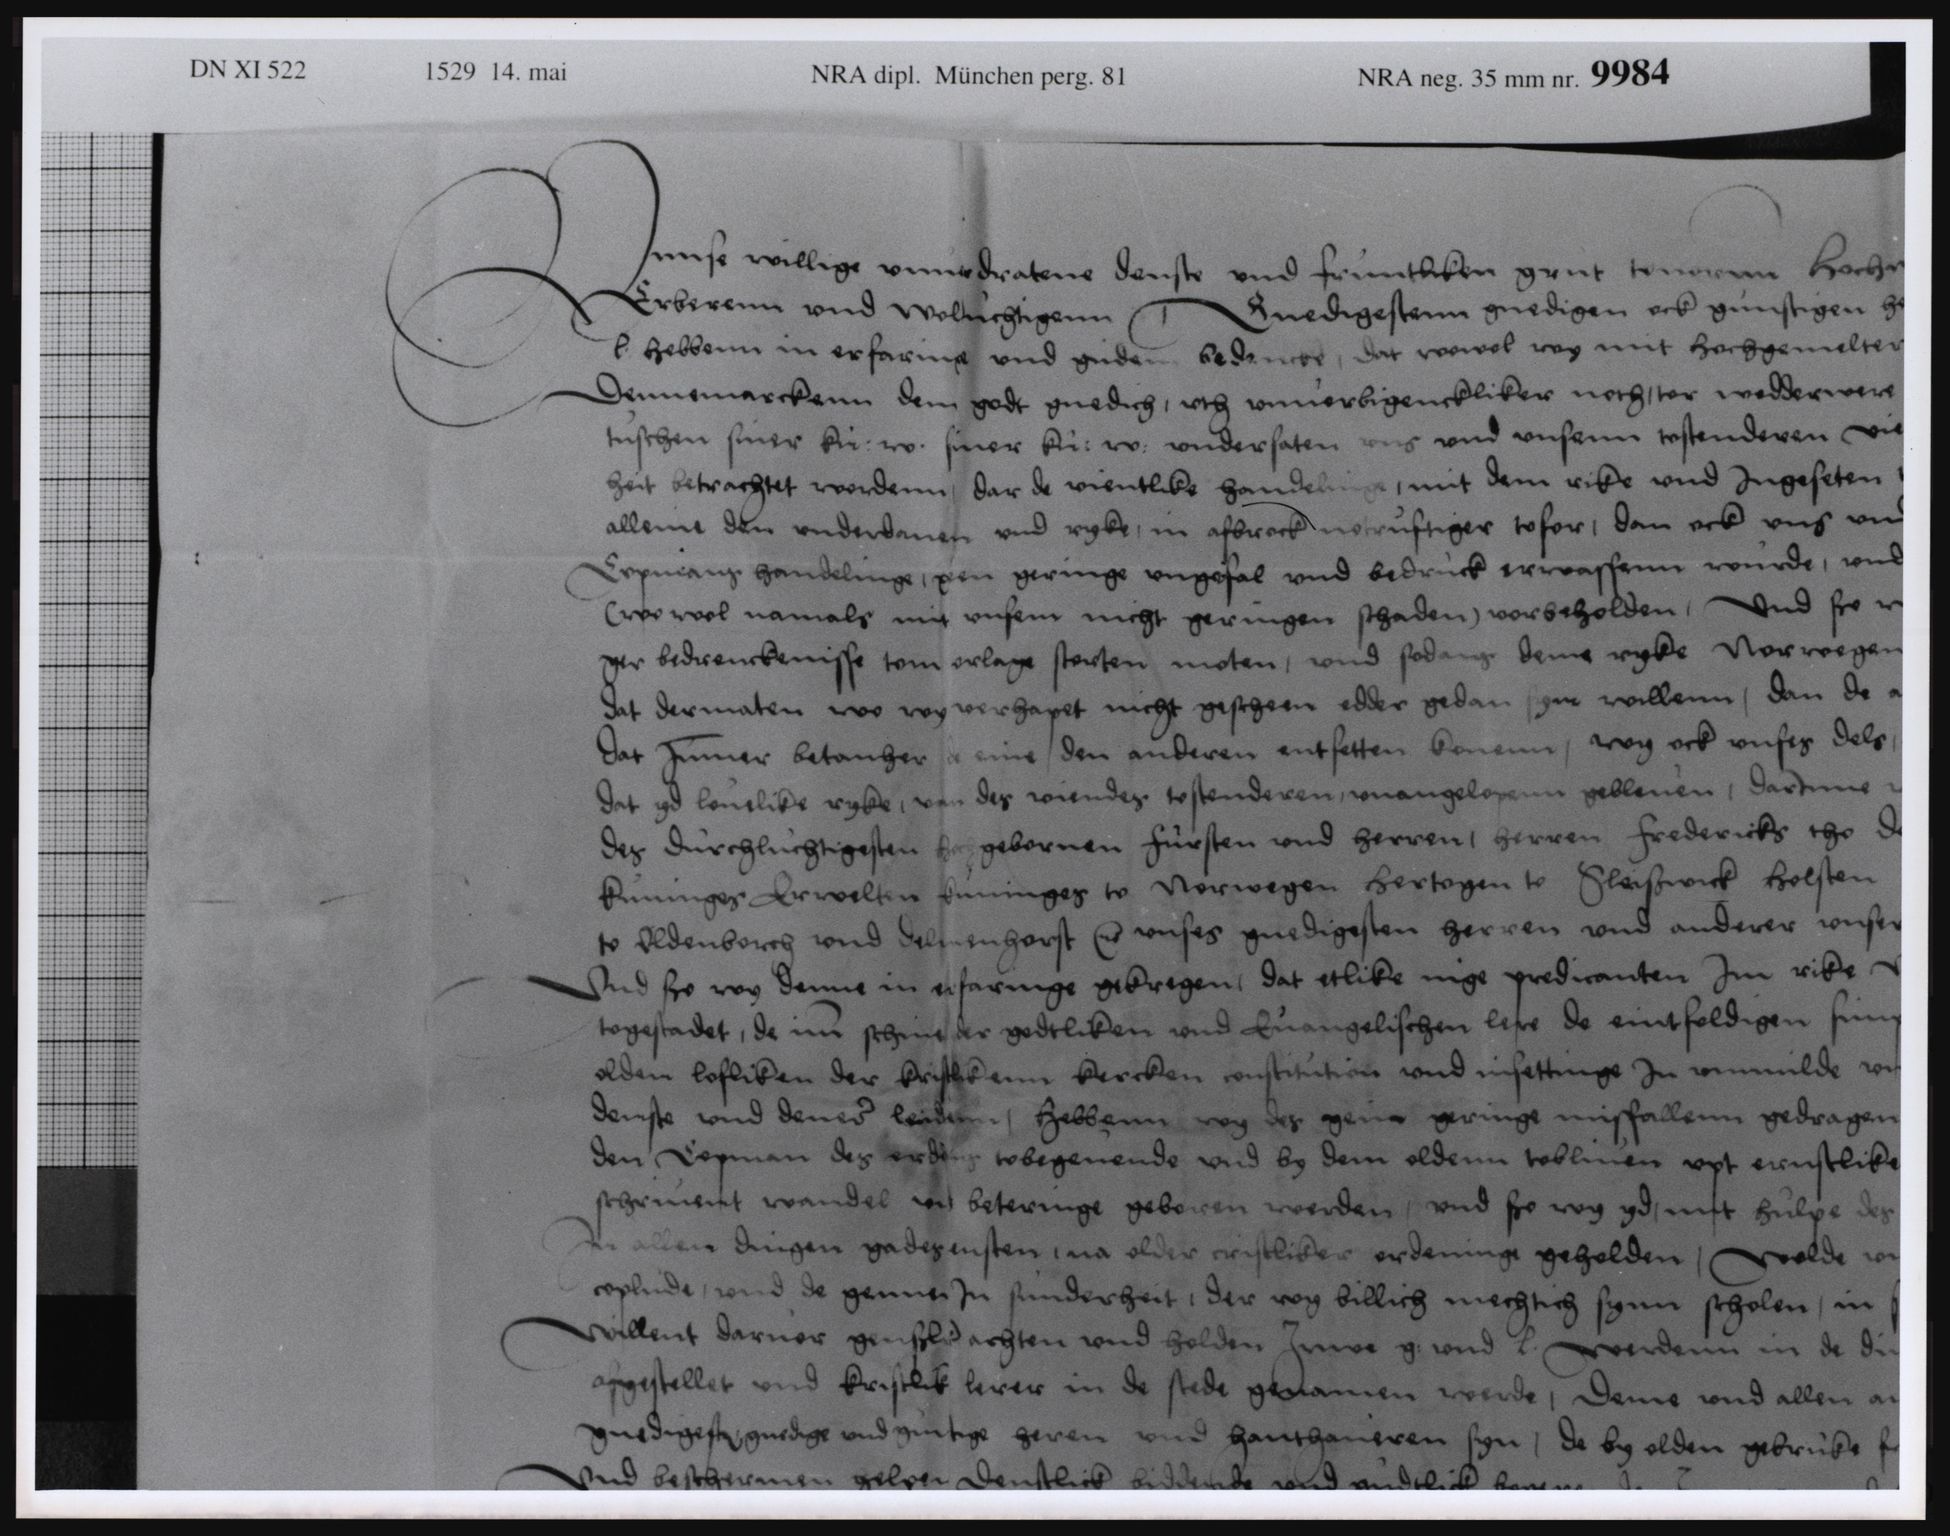 DN XI 522 1529 14. mai NRA dipl. München perg. 81 NRA neg. 35 mm nr. 9984
Vnnse willige vnuordratene denste vnd fruntliken grut touornn Hoch
Erberenn vnd Woltuchtigenn Gnedigestenn gnedigen ock gunstigen he
l. hebbenn in erfaringe vnd gudem bedencke, dat wowol wy mit hochgemelter
Dennemarckenn dem godt gnedich, vth vnuorbigenckliker noth, tor wedderwere
tuschen siner ku: w. siner ku: w: vndersaten vns vnd vnsenn tostenderen vie
heit betrachtet wordenn, dar de vientlike handelinge, mit dem rike vnd Ingeseten
alleine den vnderdanen vnd ryke, in afbrock notruftiger tofor, dan ock vns vnd
Copmans handelinge, gen geringe vngefal vnd bedruck erwassenn wurde, vnd
(wo wol namals mit vnsem nicht geringen schaden) vorbeholden, Vnd so w
ger bedrenckenisse tom orlage storten moten, vnd sodans deme ryke Norwegen
dat dermaten wo wy verhapet nicht gescheen edder gedan syn willenn, dan de a
dat Immer betanher de eine den anderen entsetten konenn, wy ock vnses dels,
dat yd louelike ryke, van des viendes tostenderen, vnangelopenn gebleuen, darinne
des durchluchtigesten hochgebornen Fursten vnd herren, herren Fredericks tho De
kuninges Erwelten kuninges to Norwegen Hertogen to Sleißwick Holsten
to Oldenborch vnd Delmenhorst vnses gnedigesten herren vnd anderer vnser
Vnd so wy denne in erfaringe gekregen, dat etlike nige predicanten Im rike
togestadet, de im schine der godtliken vnd Euangelischen lere de eintfoldigen
olden lofliken der kristlikenn kercken constitution vnd insettinge In vnmilde
denste vnd deners leidenn, hebbenn wy des gein geringe missfallenn gedragen
den Copman des ordens tobegeuende vnd by dem oldenn tobliuen vpt ernstlike
schriuent wandel vnd beteringe geboren werden, vnd so wy yd, mit hulpe des
In allen dingen gadesensten, na older cristliker ordeninge geholden, Wolde
coplude, vnd de gennen In sunderheit, der wy billich mechtich synn scholen, in
willent daruor genßlich achten vnd holden Juwe g. vnd l. werdenn in de
afgestellet vnd kristlik lerer in de stede genamen werde, Deme vnd allen
gnedigeste, gnedige vnd gunstige heren vnd hanthaueren syn, de by olden gebruke
Vnd beschermen helpen Denstlick biddende vnd gudtlick